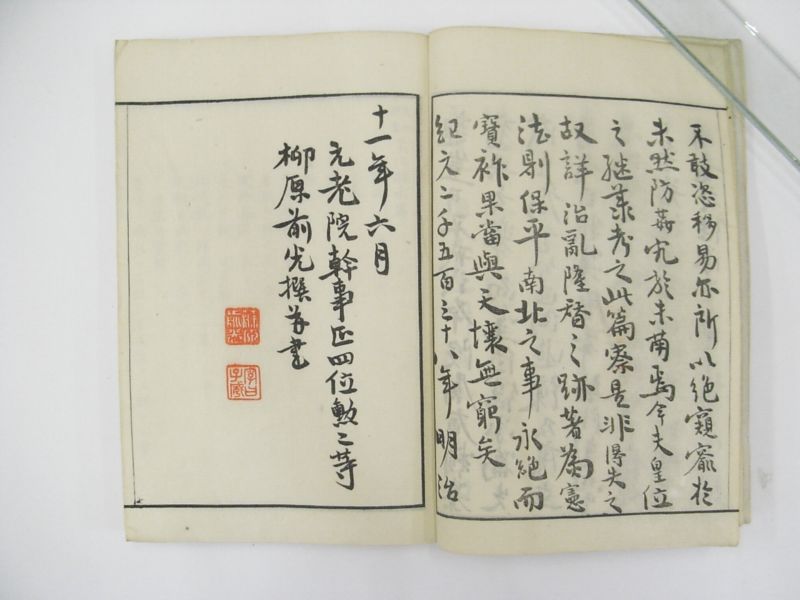 不敢恣移易亦所以絶窺窬於
未然防姦宄於未萌焉今夫皇位
之継業考之此篇察是非得失之
故詳治亂隆替之跡著為憲
法則保平南北之事永絶而
寶祚果當與天壌無窮矣
紀元二千五百三十八年明治
十一年六月
元老院幹事正四位勲二等
柳原前光撰并書